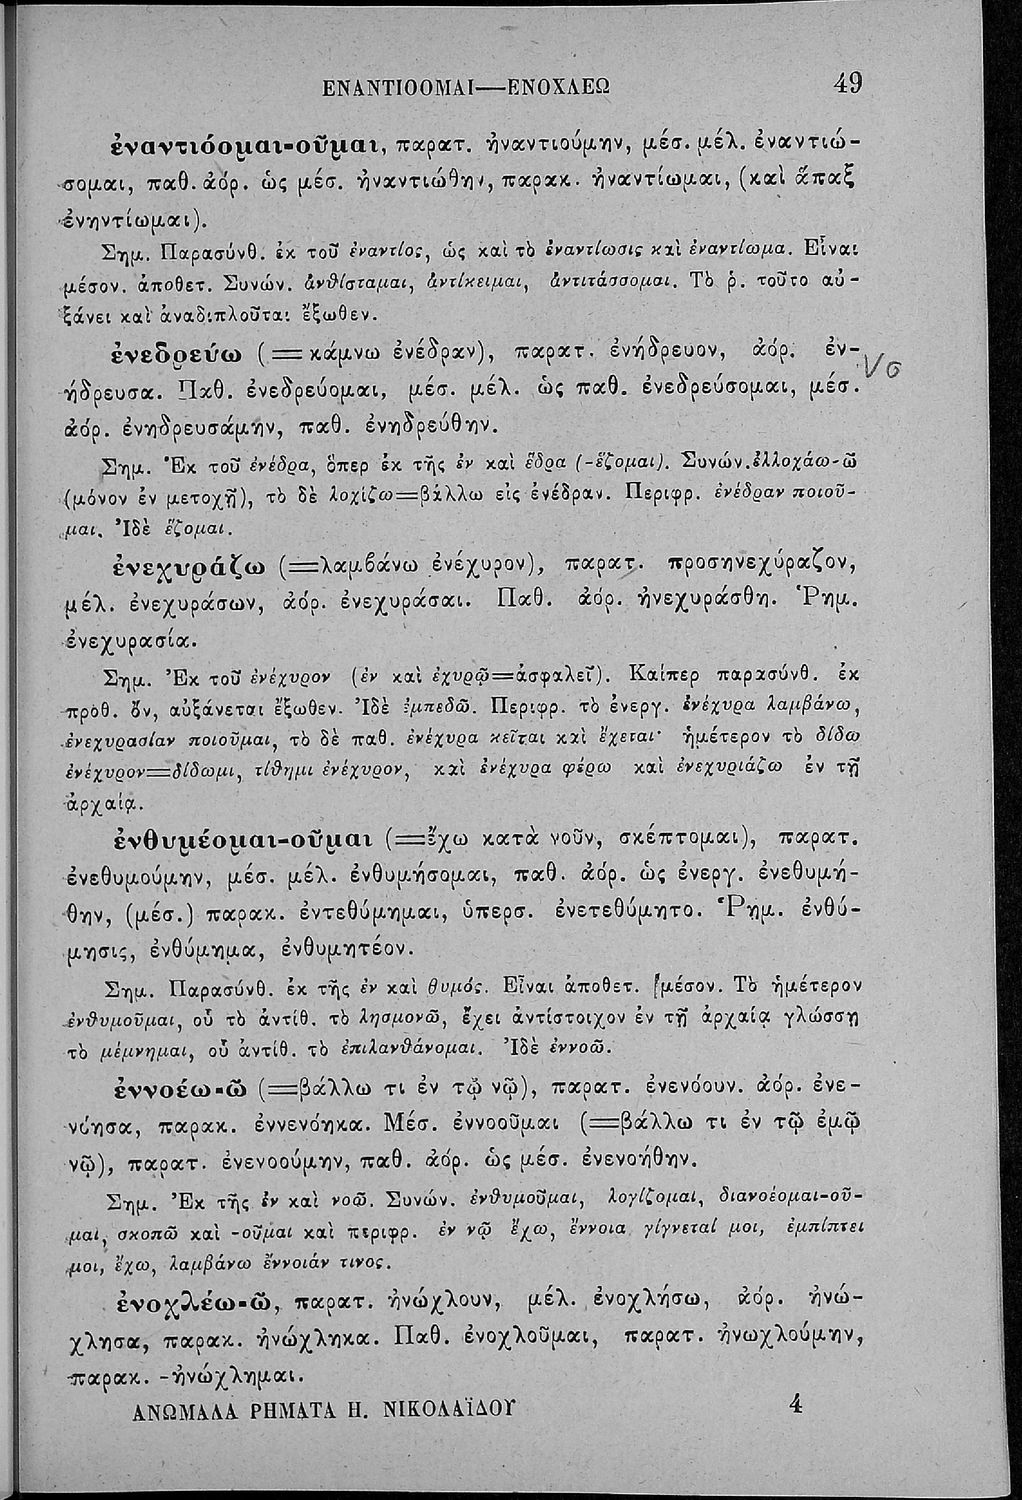 ΕΝΑΝΤΙΟΟΜΑΙ—ΕΝΟΧΛΕΩ 49
ἐναντιόομαι-οῦμαι, παρατ. ἠναντιούμην, μέσ. μέλ. ἐναντιώ-
σομαι, παθ. ἀόρ. ὡς μέσ. ἠναντιώθην, παρακ. ἠναντίωμαι, (καὶ ἅπαξ
ἐνηντίωμαι).
Σημ. Παρασύνθ. ἐκ τοῦ ἐναντίος, ὡς καὶ τὸ ἐναντίωσις καὶ ἐναντίωμα. Εἶναι
μέσον. ἀποθετ. Συνών. ἀνθίσταμαι, ἀντίκειμαι, ἀντιτάσσομαι. Τὸ ῥ. τοῦτο αὐ-
ξάνει καὶ ἀναδιπλοῦται ἔξωθεν.
ἐνεδρεύω (=κάμνω ἐνέδραν), παρατ. ἐνήδρευον, ἀόρ. ἐν-
ήδρευσα. Παθ. ἐνεδρεύομαι, μέσ. μέλ. ὡς παθ. ἐνεδρεύσομαι, μέσ.
ἀόρ. ἐνηδρευσάμην, παθ. ἐνηδρεύθην.
Σημ. Ἐκ τοῦ ἐνέδρα, ὅπερ ἐκ τῆς ἐν καὶ ἕδρα (-ἕζομαι). Συνών.ἐλλοχάω-ῶ
(μόνον ἐν μετοχῇ), τὸ δὲ λοχίζω=βάλλω εἰς ἐνέδραν. Περιφρ. ἐνέδραν ποιοῦ-
μαι. Ἰδὲ ἕζομαι.
ἐνεχυράζω (=λαμβάνω ἐνέχυρον), παρατ. προσηνεχύραζον,
μέλ. ἐνεχυράσων, ἀόρ. ἐνεχυράσαι. Παθ. ἀόρ. ἠνεχυράσθη. Ῥημ.
ἐνεχυρασία.
Σημ. Ἐκ τοῦ ἐνέχυρον (ἐν καὶ ἐχυρῷ=ἀσφαλεῖ). Καίπερ παρασύνθ. ἐκ
προθ. ὄν, αὐξάνεται ἔξωθεν. Ἰδὲ ἐμπεδῶ. Περιφρ. τὸ ἐνεργ. ἐνέχυρα λαμβάνω,
ἐνεχυρασίαν ποιοῦμαι, τὸ δὲ παθ. ἐνέχυρα κεῖται καὶ ἔχεται· ἡμέτερον τὸ δίδω
ἐνέχυρον=δίδωμι, τίθημι ἐνέχυρον, καὶ ἐνέχυρα φέρω καὶ ἐνεχυριάζω ἐν τῇ
ἀρχαίᾳ.
ἐνθυμέομαι-οῦμαι (=ἔχω κατὰ νοῦν, σκέπτομαι), παρατ.
ἐνεθυμούμην, μέσ. μέλ. ἐνθυμήσομαι, παθ. ἀόρ. ὡς ἐνεργ. ἐνεθυμή-
θην, (μέσ.) παρακ. ἐντεθύμημαι, ὑπερσ. ἐνετεθύμητο. Ῥημ. ἐνθύ-
μησις, ἐνθύμημα, ἐνθυμητέον.
Σημ. Παρασύνθ. ἐκ τῆς ἐν καὶ θυμός. Εἶναι ἀποθετ. μέσον. Τὸ ἡμέτερον
ἐνθυμοῦμαι, οὗ τὸ ἀντίθ. τὸ λησμονῶ, ἔχει ἀντίστοιχον ἐν τῇ ἀρχαίᾳ γλώσσῃ
τὸ μέμνημαι, οὗ ἀντίθ. τὸ ἐπιλανθάνομαι. Ἰδὲ ἐννοῶ.
ἐννοέω-ῶ (=βάλλω τι ἐν τῷ νῷ), παρατ. ἐνενόουν. ἀόρ. ἐνε-
νόησα, παρακ. ἐννενόηκα. Μέσ. ἐννοοῦμαι (=βάλλω τι ἐν τῷ ἐμῷ
νῷ), παρατ. ἐνενοούμην, παθ. ἀόρ. ὡς μέσ. ἐνενοήθην.
Σημ. Ἐκ τῆς ἐν καὶ νοῶ. Συνών. ἐνθυμοῦμαι, λογίζομαι, διανοέομαι-οῦ-
μαι, σκοπῶ καὶ -οῦμαι καὶ περιφρ. ἐν νῷ ἔχω, ἔννοια γίγνεταί μοι, ἐμπίπτει
μοι, ἔχω, λαμβάνω ἔννοιάν τινος.
ἐνοχλέω-ῶ, παρατ. ἠνώχλουν, μέλ. ἐνοχλήσω, ἀόρ. ἠνώ-
χλησα, παρακ. ἠνώχληκα. Παθ. ἐνοχλοῦμαι, παρατ. ἠνωχλούμην,
παρακ. -ἠνώχλημαι.
ΑΝΩΜΑΛΑ ΡΗΜΑΤΑ Η. ΝΙΚΟΛΑΪΔΟΥ 4